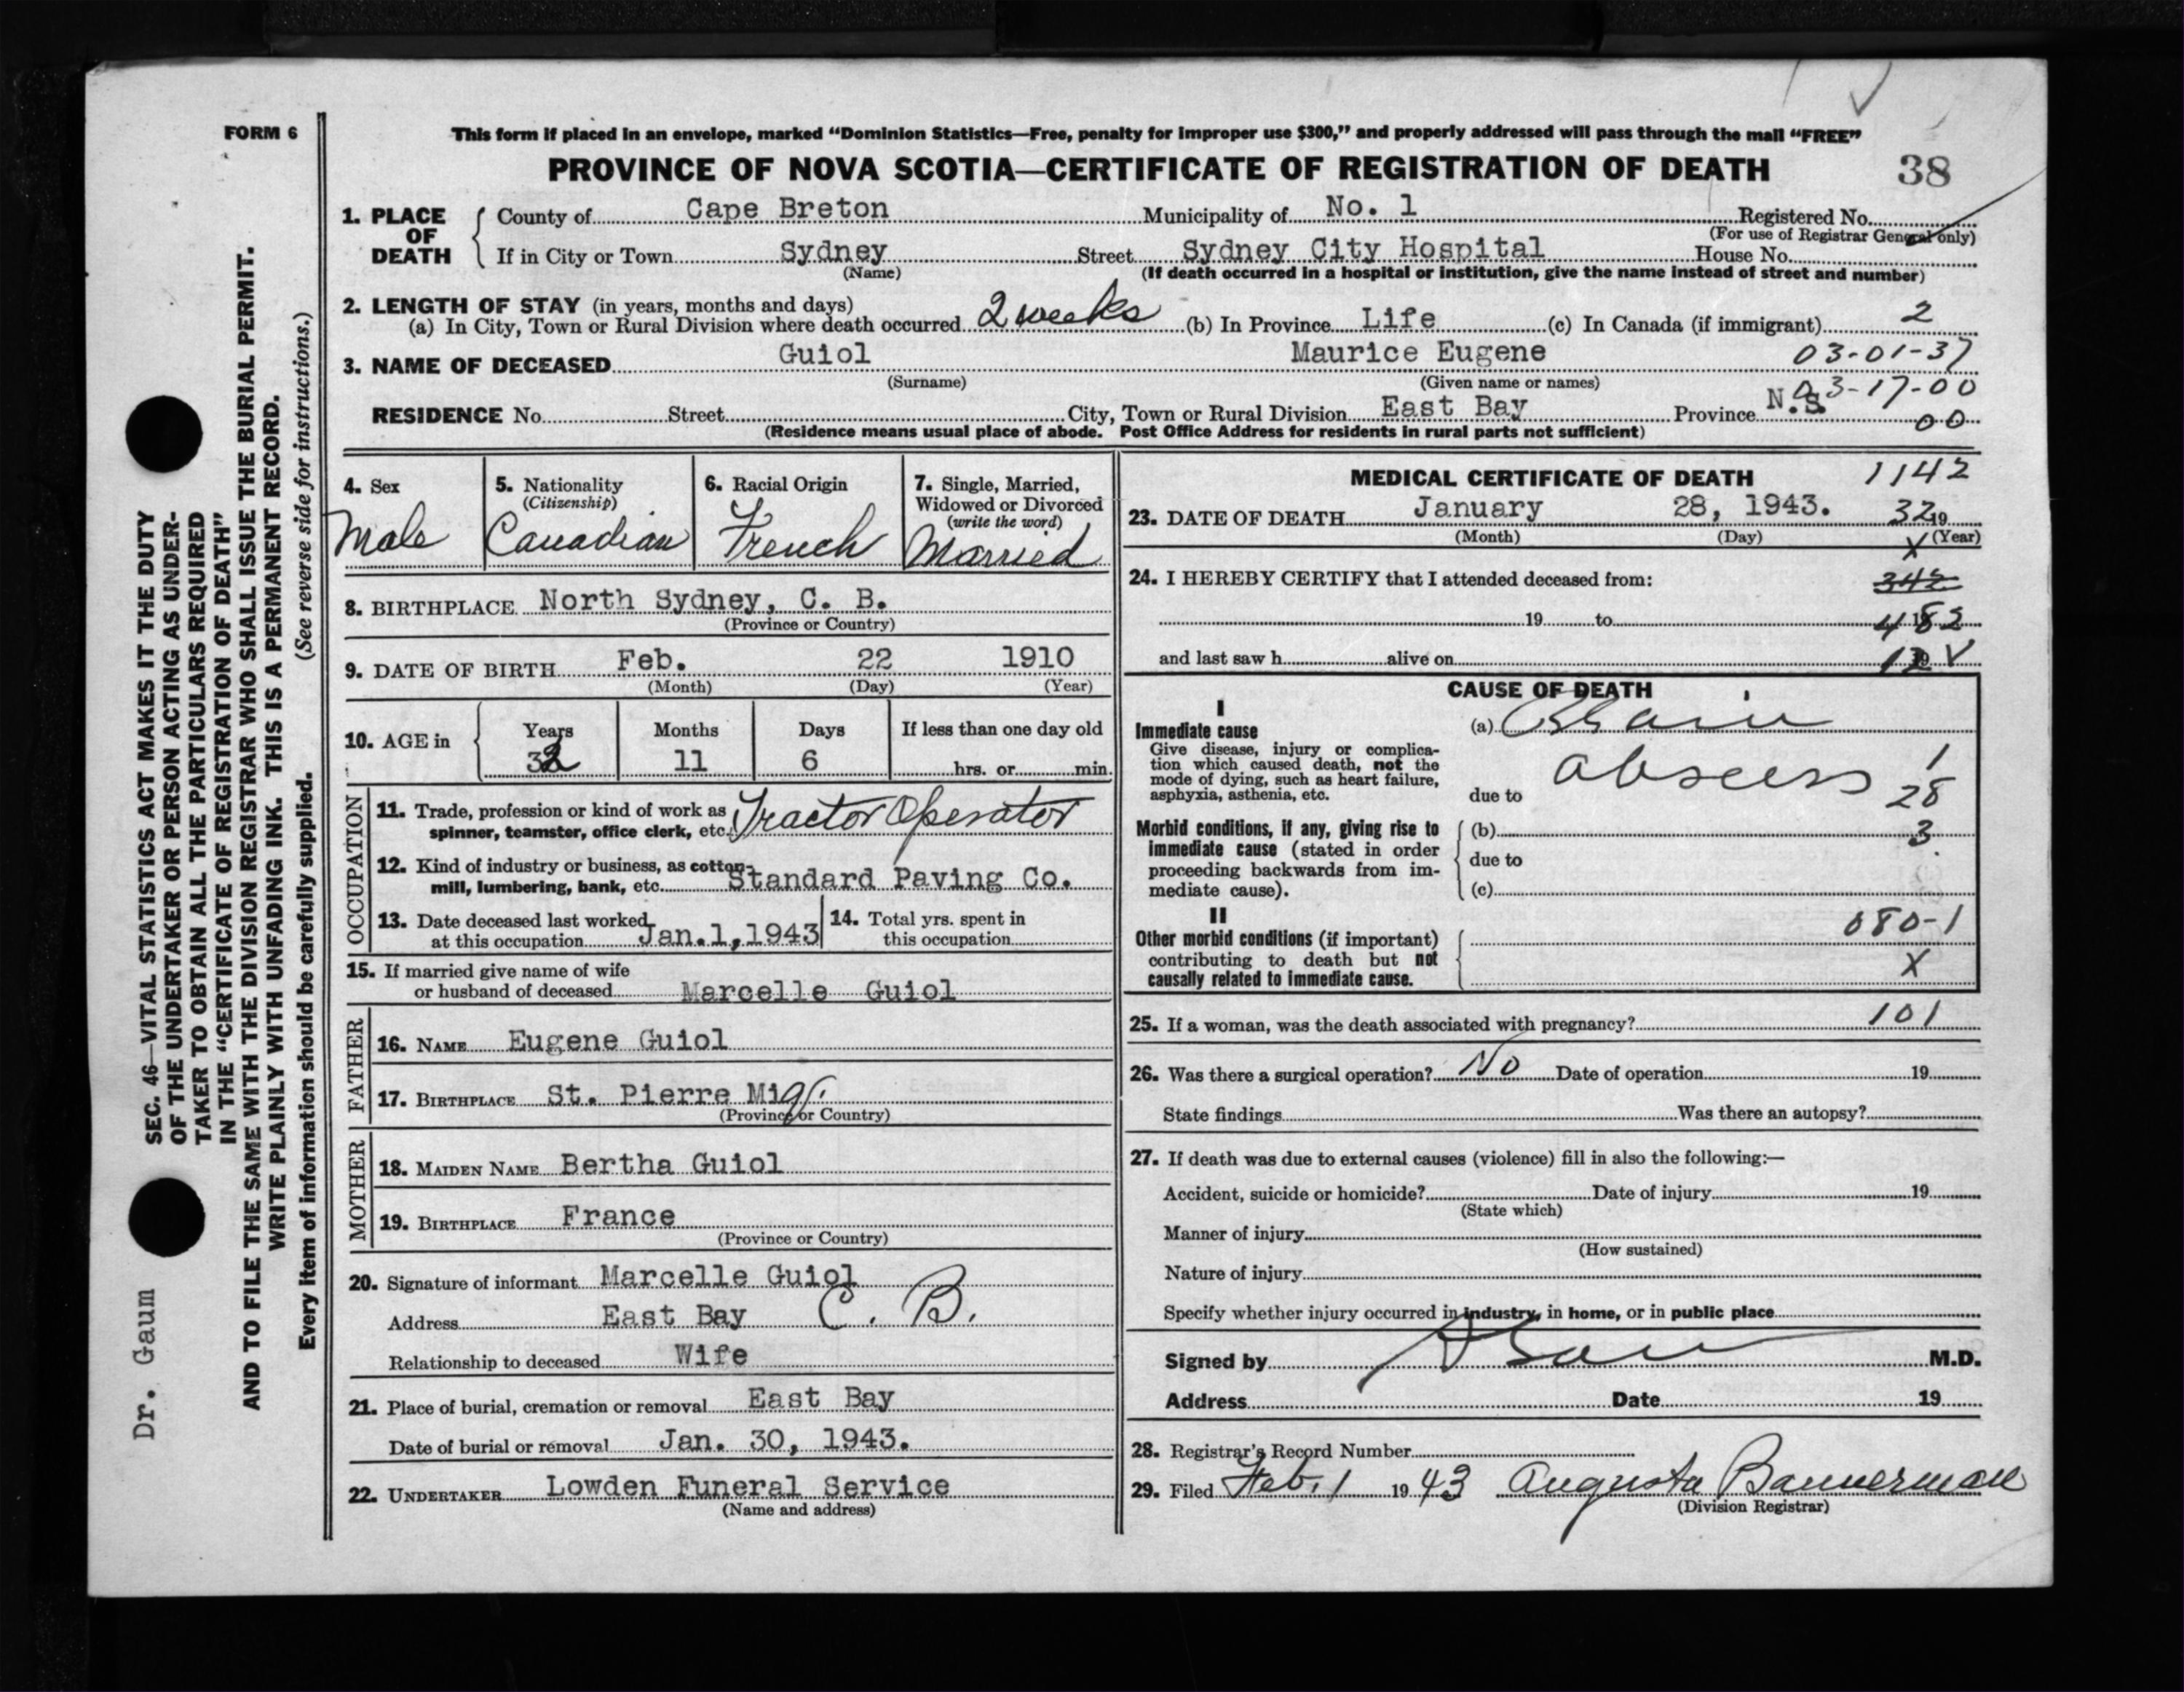 FORM 6
This form if placed in an envelope, marked “Dominion Statistics—Free, penalty for improper use $300,” and properly addressed will pass through the mail “FREE”
PROVINCE OF NOVA SCOTIA—CERTIFICATE OF REGISTRATION OF DEATH
38
1. PLACE OF DEATH County of Cape Breton Municipality of No. 1 Registered No.
(For use of Registrar General only)
If in City or Town Sydney Street Sydney City Hospital House No.
(Name) (If death occurred in a hospital or institution, give the name instead of street and number)
2. LENGTH OF STAY (in years, months and days)
(a) In City, Town or Rural Division where death occurred 2 weeks (b) In Province Life (c) In Canada (if immigrant) 2
3. NAME OF DECEASED Guiol Maurice Eugene 03-01-37
(Surname) (Given name or names) 03-17-00
RESIDENCE No. Street City, Town or Rural Division East Bay Province N.S. 00
(Residence means usual place of abode. Post Office Address for residents in rural parts not sufficient)
4. Sex
Male
5. Nationality
(Citizenship)
Canadian
6. Racial Origin
French
7. Single, Married,
Widowed or Divorced
(write the word)
Married
8. BIRTHPLACE North Sydney, C. B.
(Province or Country)
9. DATE OF BIRTH Feb. 22 1910
(Month) (Day) (Year)
10. AGE in Years Months Days If less than one day old
32 11 6 hrs. or min.
OCCUPATION
11. Trade, profession or kind of work as
spinner, teamster, office clerk, etc. Tractor Operator
12. Kind of industry or business, as cotton-
mill, lumbering, bank, etc. Standard Paving Co.
13. Date deceased last worked
at this occupation Jan.1,1943
14. Total yrs. spent in
this occupation
15. If married give name of wife
or husband of deceased Marcelle Guiol
FATHER
16. NAME Eugene Guiol
17. BIRTHPLACE St. Pierre Miq.
(Province or Country)
MOTHER
18. MAIDEN NAME Bertha Guiol
19. BIRTHPLACE France
(Province or Country)
20. Signature of informant Marcelle Guiol
Address East Bay C. B.
Relationship to deceased Wife
21. Place of burial, cremation or removal East Bay
Date of burial or removal Jan. 30, 1943.
22. UNDERTAKER Lowden Funeral Service
(Name and address)
MEDICAL CERTIFICATE OF DEATH 1142
23. DATE OF DEATH January 28, 1943. 32 19
(Month) (Day) (Year)
X
24. I HEREBY CERTIFY that I attended deceased from: 342
19 to 482
and last saw h alive on 19 V
CAUSE OF DEATH
I
Immediate cause
Give disease, injury or complica-
tion which caused death, not the
mode of dying, such as heart failure,
asphyxia, asthenia, etc.
(a) Brain
abscess 1
due to 28
Morbid conditions, if any, giving rise to
immediate cause (stated in order
proceeding backwards from im-
mediate cause).
(b) 3
due to
(c)
II
Other morbid conditions (if important)
contributing to death but not
causally related to immediate cause.
080-1
X
25. If a woman, was the death associated with pregnancy? 101
26. Was there a surgical operation? No Date of operation 19
State findings Was there an autopsy?
27. If death was due to external causes (violence) fill in also the following:—
Accident, suicide or homicide? Date of injury 19
(State which)
Manner of injury
(How sustained)
Nature of injury
Specify whether injury occurred in industry, in home, or in public place
Signed by M.D.
Address Date 19
28. Registrar's Record Number
29. Filed Feb. 1 1943 Augusta Bannerman
(Division Registrar)
SEC. 46—VITAL STATISTICS ACT MAKES IT THE DUTY
OF THE UNDERTAKER OR PERSON ACTING AS UNDER-
TAKER TO OBTAIN ALL THE PARTICULARS REQUIRED
IN THE “CERTIFICATE OF REGISTRATION OF DEATH”
AND TO FILE THE SAME WITH THE DIVISION REGISTRAR WHO SHALL ISSUE THE BURIAL PERMIT.
WRITE PLAINLY WITH UNFADING INK. THIS IS A PERMANENT RECORD.
Every item of information should be carefully supplied. (See reverse side for instructions.)
Dr. Gaum